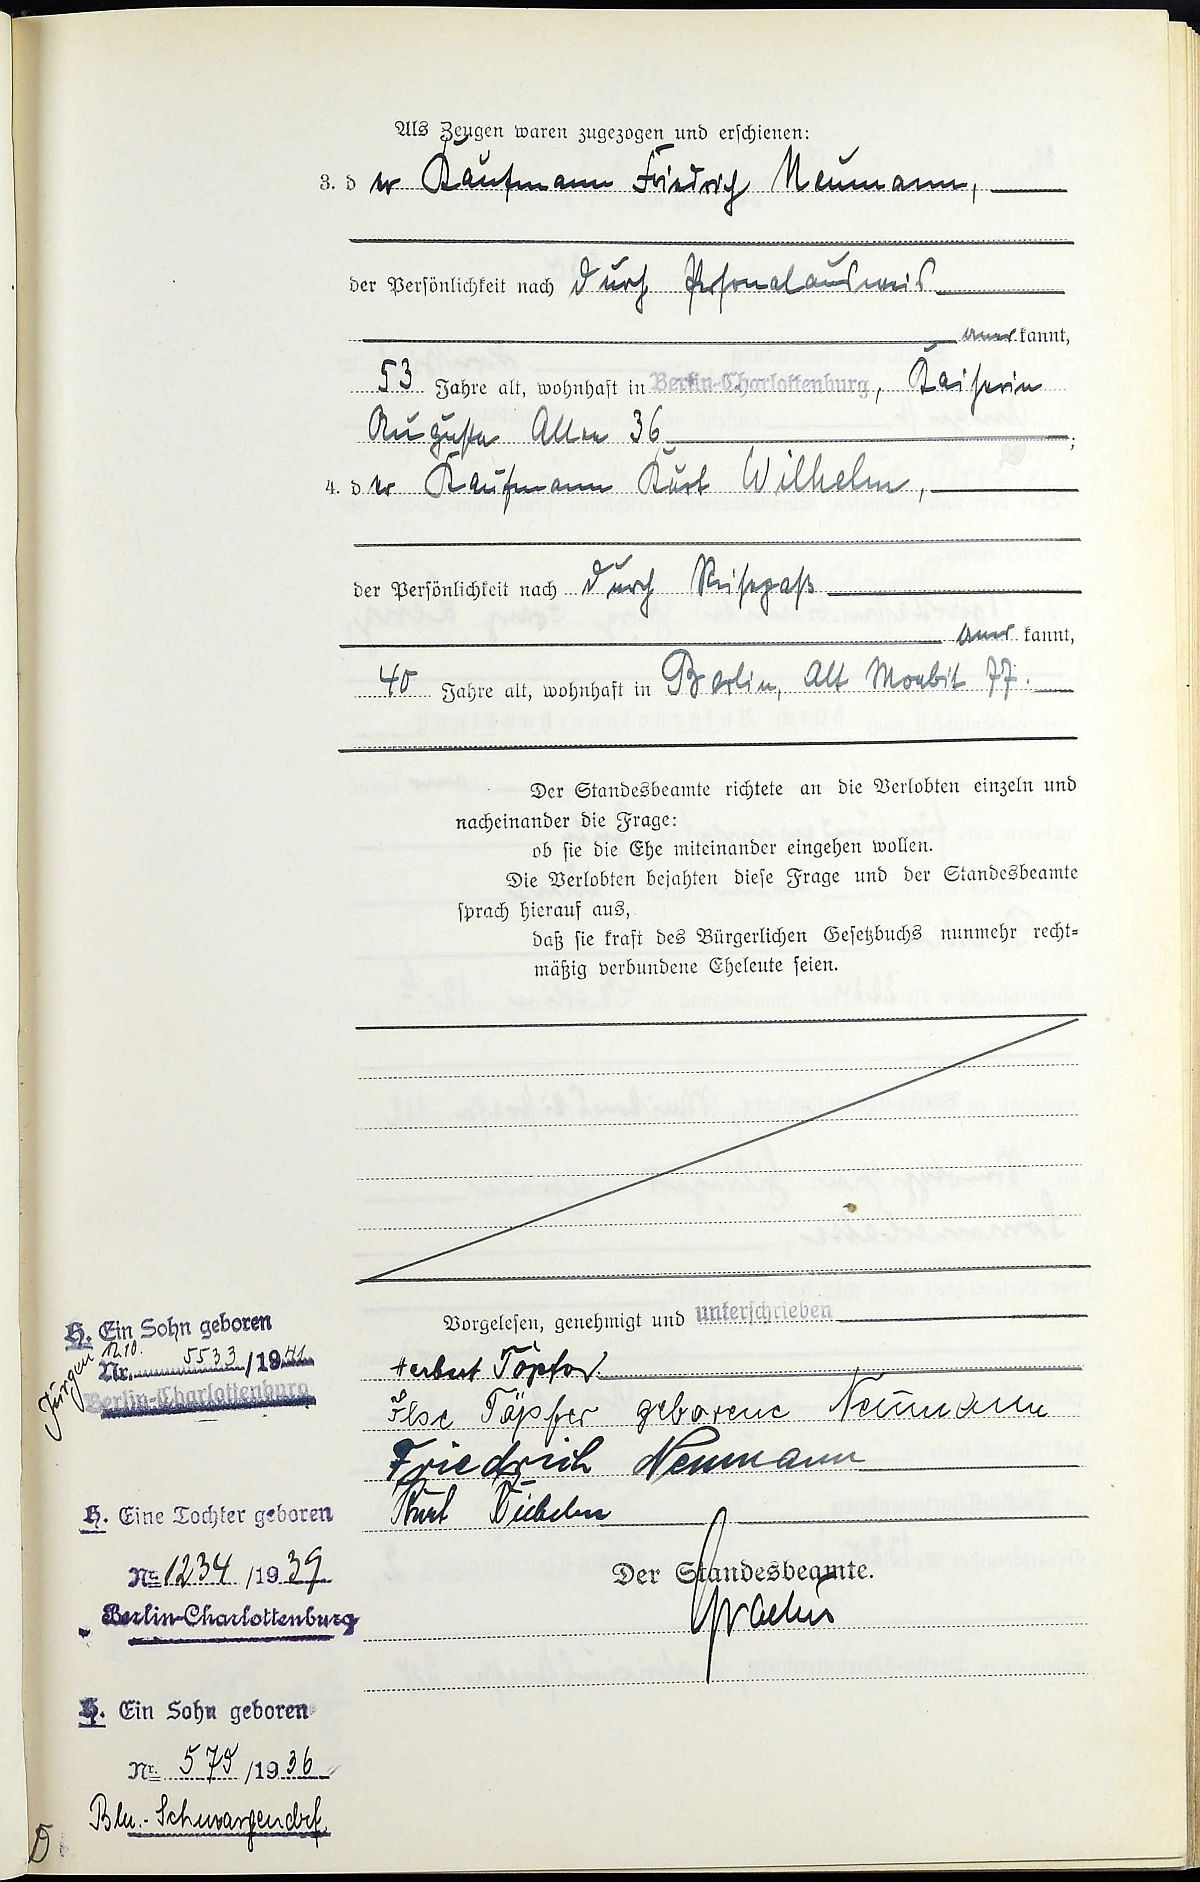 Als Zeugen waren zugezogen und erschienen:
3. d er Kaufmann Friedrich Neumann,
der Persönlichkeit nach durch Personalausweis
aner kannt,
53 Jahre alt, wohnhaft in Berlin-Charlottenburg, Kaiserin
Augusta Allee 36 ;
4. d er Kaufmann Kurt Wilhelm,
der Persönlichkeit nach durch Reisepaß
aner kannt,
40 Jahre alt, wohnhaft in Berlin, Alt Moabit 77.
Der Standesbeamte richtete an die Verlobten einzeln und
nacheinander die Frage:
ob sie die Ehe miteinander eingehen wollen.
Die Verlobten bejahten diese Frage und der Standesbeamte
sprach hierauf aus,
daß sie kraft des Bürgerlichen Gesetzbuchs nunmehr recht-
mäßig verbundene Eheleute seien.
Vorgelesen, genehmigt und unterschrieben
Herbert Töpfer
Ilse Töpfer geborene Neumann
Friedrich Neumann
Kurt Wilhelm
Der Standesbeamte.
H. Ein Sohn geboren
Jürgen 12.10.
Nr. 5533/1941
Berlin-Charlottenburg
H. Eine Tochter geboren
Nr. 1234/1939
Berlin-Charlottenburg
H. Ein Sohn geboren
Nr. 575/1936
Bln.-Schmargendorf